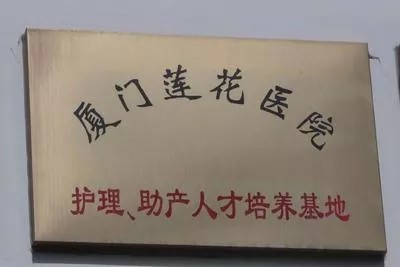 厦门莲花医院
护理、助产人才培养基地